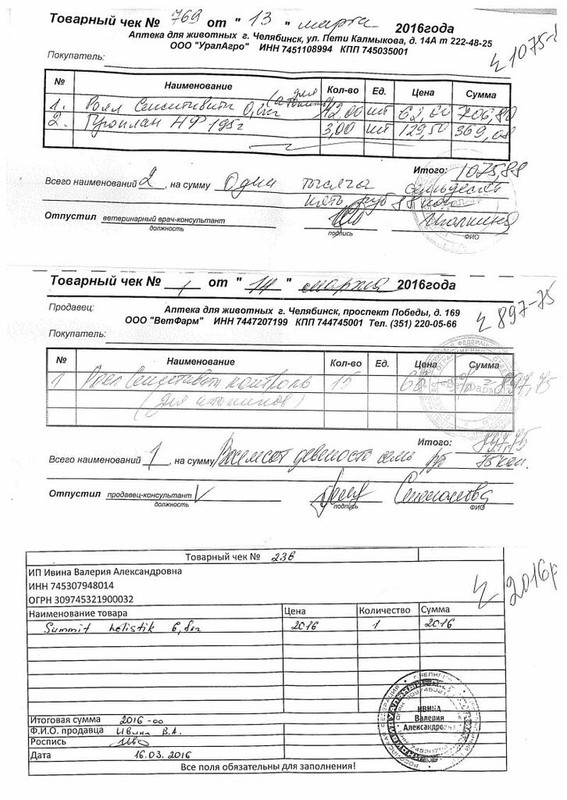 Товарный чек № 769 от " 13 " марта 2016года
Аптека для животных г. Челябинск, ул. Пети Калмыкова, д. 14А т 222-48-25
ООО "УралАгро" ИНН 7451108994 КПП 745035001
Покупатель:
№ Наименование Кол-во Ед. Цена Сумма
1. Роял Сенситивити 12,00 шт 706,80
2. 195г 3,00 шт 369,08
Итого: 1075,88
Всего наименований 2 , на сумму Один тысяча семьдесят
пять руб 88 коп
Отпустил ветеринарный врач-консультант
должность подпись ФИО
Товарный чек № 1 от " 14 " марта 2016года
Продавец: Аптека для животных г. Челябинск, проспект Победы, д. 169
ООО "ВетФарм" ИНН 7447207199 КПП 744745001 Тел. (351) 220-05-66
897-75
Покупатель:
№ Наименование Кол-во Ед. Цена Сумма
1 Роял Сенситивити контроль 15 897,75
Итого: 897,75
Всего наименований 1 , на сумму Восемсот девяносто семь руб 75 коп.
Отпустил продавец-консультант
должность подпись ФИО
Товарный чек № 236
ИП Ивина Валерия Александровна
ИНН 745307948014
ОГРН 309745321900032
Наименование товара Цена Количество Сумма
Summit holistik 6,8кг 2016 1 2016
Итоговая сумма 2016-00
Ф.И.О. продавца Ивина В.А.
Роспись
Дата 16.03.2016
Все поля обязательны для заполнения!
ИВИНА
Валерия
Александровна